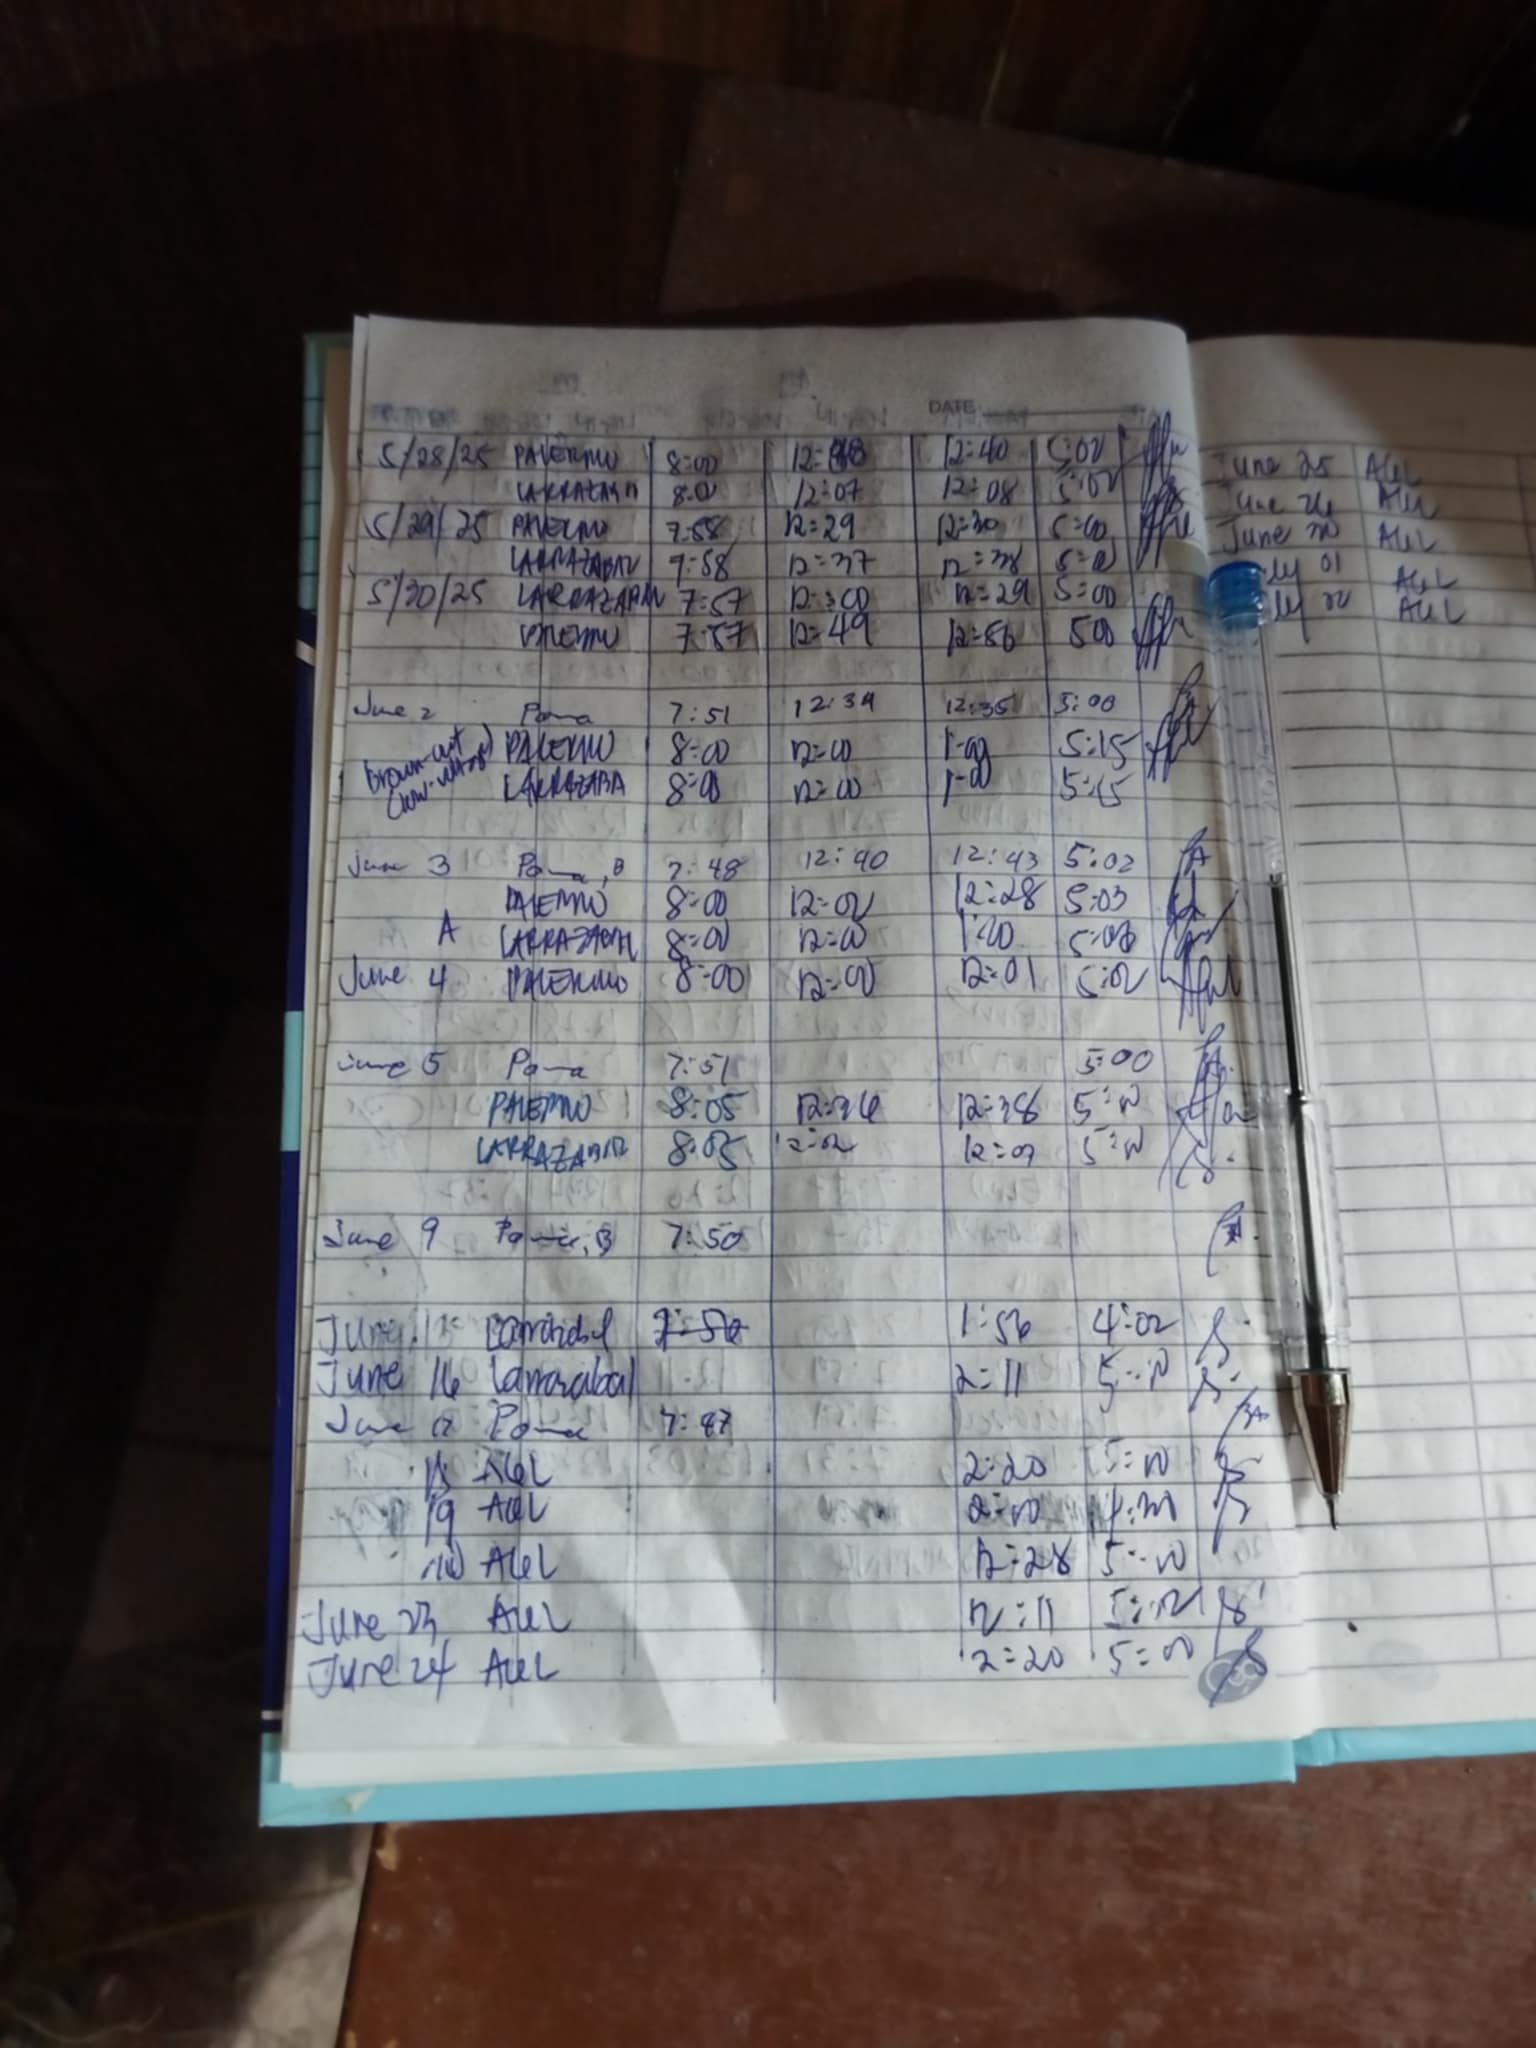 DATE
5/28/25 PALERMO 8:00 12:40 5:02
LARRAZABAL 8:00 12:07 12:08 5:02
5/29/25 PALERMO 7:58 12:29 12:30 5:00
LARRAZABAL 7:58 12:37 12:38 5:00
5/30/25 LARRAZABAL 7:57 12:00 12:29 5:00
PALERMO 7:57 12:49 12:56 500
June 2 Poma 7:51 12:34 12:35 5:00
Brown-out PALERMO 8:00 12:00 1:00 5:15
(low-voltage) LARRAZABA 8:00 12:00 1:00 5:15
June 3 Poma, B 7:48 12:40 12:43 5:02
PALERMO 8:00 12:00 12:28 5:03
A LARRAZABAL 8:00 12:00 1:00
June 4 PALERMO 8:00 12:00 12:01 5:02
June 5 Poma 7:51 5:00
PALERMO 8:05 12:36 12:38 5:00
LARRAZABAL 8:05 12:02 5:00
June 9 7:50
June Larrazabal 7:56 1:56 4:02
June 16 Larrazabal 2:11 5:00
June Poma 7:47
AGL 2:20 5:00
19 AGL 2:00 4:30
AGL 12:28 5:00
June 23 AGL 12:11
June 24 AGL 2:20 5:00
June 25 AGL
June 26 AGL
June 30 AGL
01 AGL
02 AGL